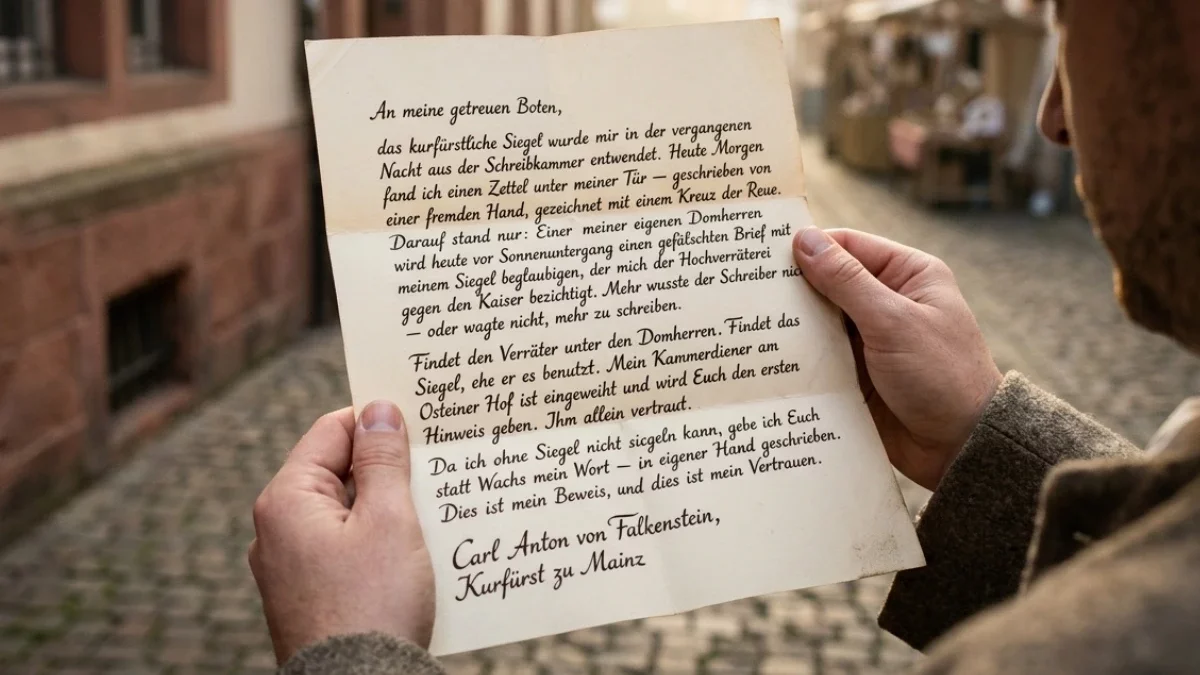 An meine getreuen Boten,
das kurfürstliche Siegel wurde mir in der vergangenen
Nacht aus der Schreibkammer entwendet. Heute Morgen
fand ich einen Zettel unter meiner Tür — geschrieben von
einer fremden Hand, gezeichnet mit einem Kreuz der Reue.
Darauf stand nur: Einer meiner eigenen Domherren
wird heute vor Sonnenuntergang einen gefälschten Brief mit
meinem Siegel beglaubigen, der mich der Hochverräterei
gegen den Kaiser bezichtigt. Mehr wusste der Schreiber
— oder wagte nicht, mehr zu schreiben.
Findet den Verräter unter den Domherren. Findet das
Siegel, ehe er es benutzt. Mein Kammerdiener am
Osteiner Hof ist eingeweiht und wird Euch den ersten
Hinweis geben. Ihm allein vertraut.
Da ich ohne Siegel nicht sicgeln kann, gebe ich Euch
statt Wachs mein Wort — in eigener Hand geschrieben.
Dies ist mein Beweis, und dies ist mein Vertrauen.
Carl Anton von Falkenstein,
Kurfürst zu Mainz